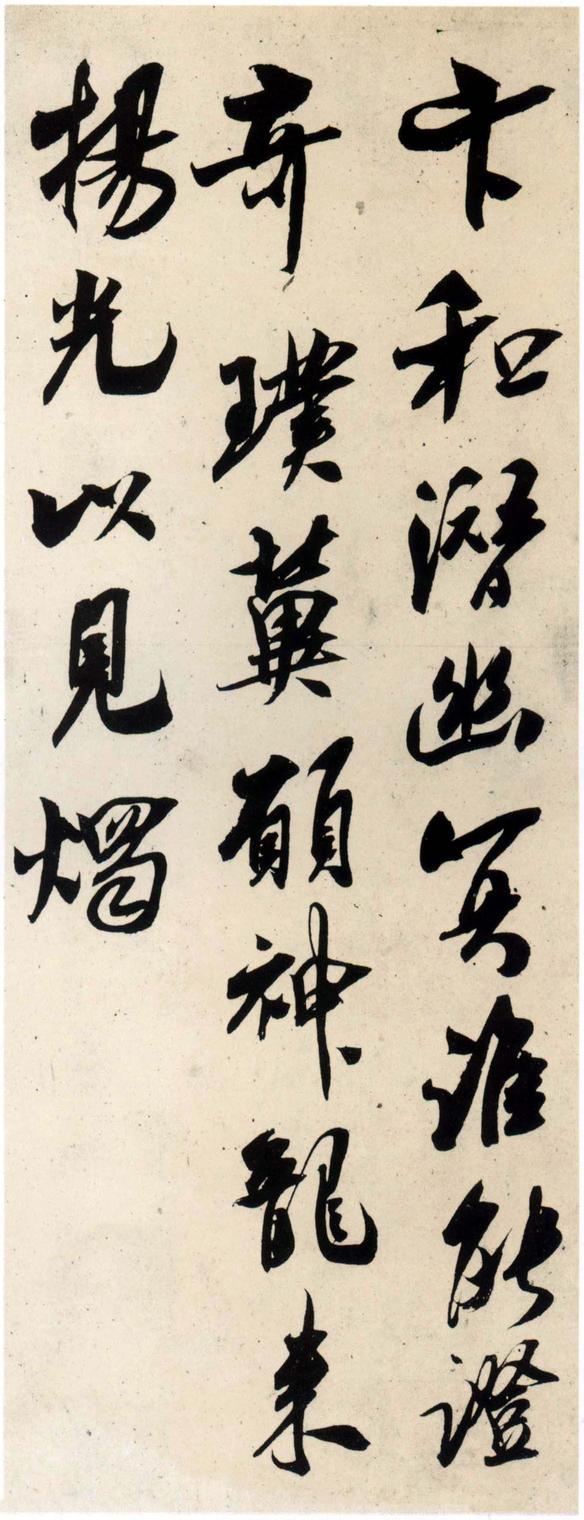 卞和潛幽冥誰能證
奇璞兾願神龍来
揚光以見燭